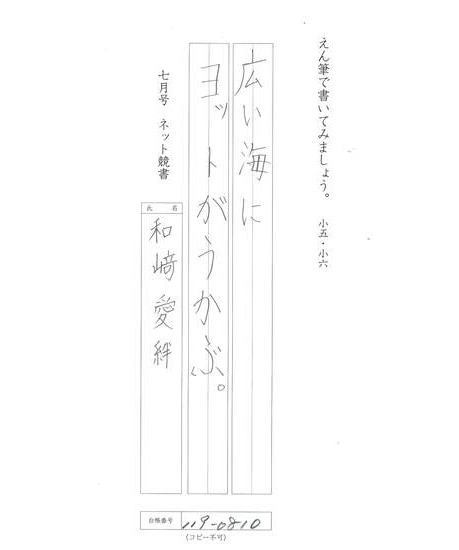 えん筆で書いてみましょう。 小五・小六
広い海に
ヨットがうかぶ。
七月号 ネット競書
氏名
和﨑愛絆
台帳番号 119-0810
(コピー不可)